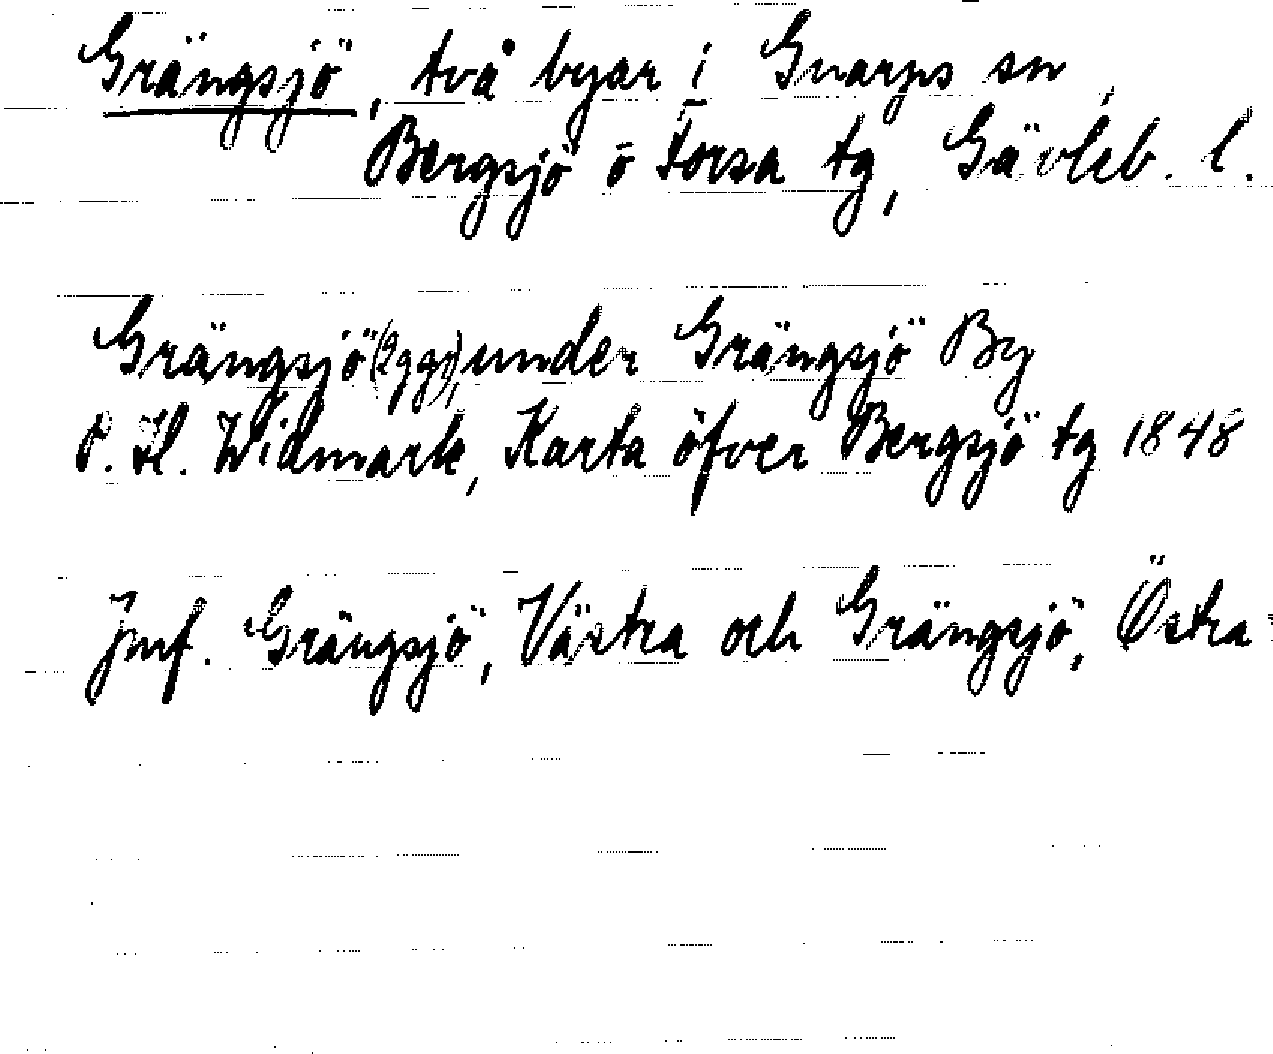 Grängsjö, två byar i Gnarps sn,
Bergsjö o Forsa tg, Gävleb. l.
Grängsjö (2 ggr), under Grängsjö By
P. H. Widmark, Karta öfver Bergsjö tg 1848
Jmf. Grängsjö, Västra och Grängsjö, Östra